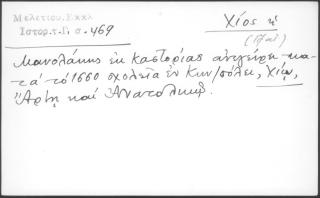 Μελετίου. Εκκλ
Ιστορ. τ. Γ. σ. 469
Χίος ἡ
Μανολάκης ἐκ Καστορίας ἀνήγειρε κα-
τά τό 1660 σχολεῖα ἐν Κων/πόλει, Χίῳ,
Ἄρτῃ καί Ἀνατολικῷ.